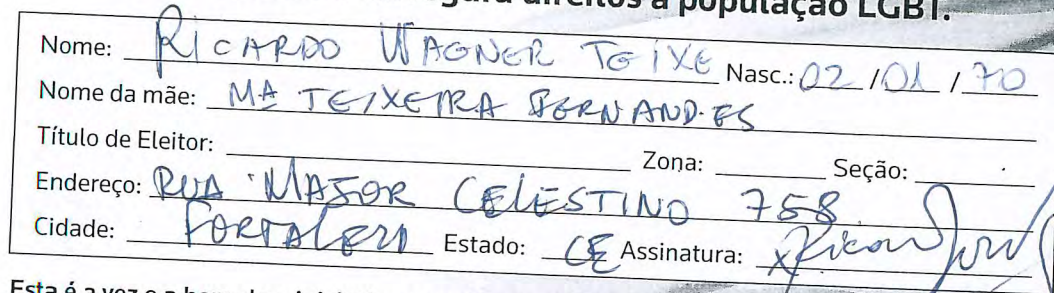 direitos à população LGBT.
Nome: RICARDO WAGNER TEIXE Nasc.: 02 / 01 / 70
Nome da mãe: Mª TEIXEIRA FERNANDES
Título de Eleitor: Zona: Seção:
Endereço: RUA MAJOR CELESTINO 758
Cidade: FORTALEZA Estado: CE Assinatura: x Ricardo
Esta é a vez e a hora